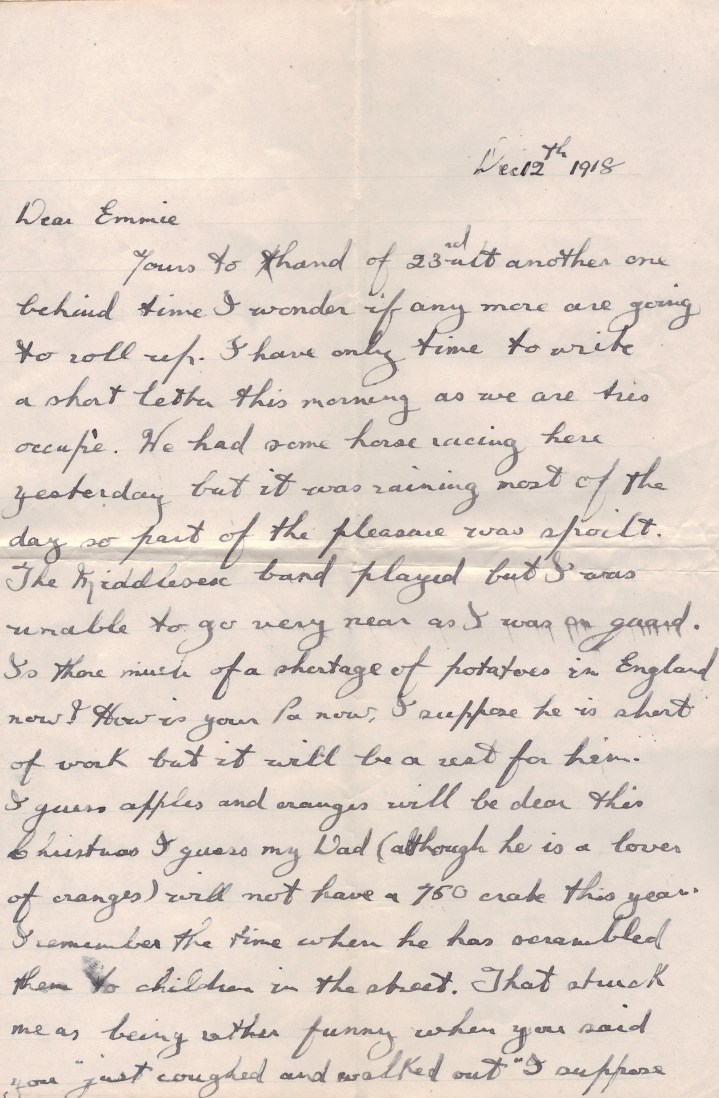 Dec 12th 1918
Dear Emmie
Yours to hand of 23rd ult another one
behind time I wonder if any more are going
to roll up. I have only time to write
a short letter this morning as we are tres
occupé. We had some horse racing here
yesterday but it was raining most of the
day so part of the pleasure was spoilt.
The Middlesex band played but I was
unable to go very near as I was on guard.
Is there much of a shortage of potatoes in England
now? How is your Pa now, I suppose he is short
of work but it will be a rest for him.
I guess apples and oranges will be dear this
Christmas I guess my Dad (although he is a lover
of oranges) will not have a 750 crate this year.
I remember the time when he has scrambled
them to children in the street. That struck
me as being rather funny when you said
you "just coughed and walked out" I suppose